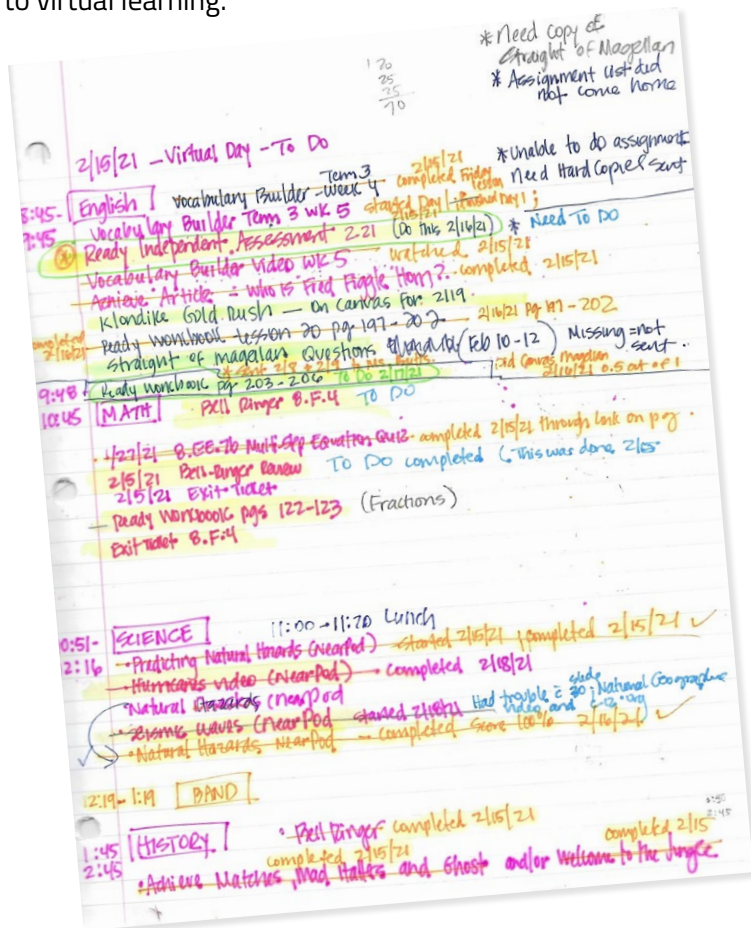 to virtual learning.
* Need copy of
Straight of Magellan
* Assignment list did
not come home
120
25
25
70
2/15/21 - Virtual Day - To Do
* Unable to do assignment
need Hard Copies sent
8:45-
9:45
English
Vocabulary Builder - Term 3 week 4
completed Friday
Vocabulary Builder Term 3 wk 5
started Day 1 ; finished Day 1 ;
2/15/21
* Ready Independent Assessment 2-21 (Do this 2/16/21) * Need To DO
Vocabulary Builder Video WK 5 - watched 2/15/21
Achieve Article - Who is Fred Figgle Horn? - completed 2/15/21
Klondike Gold Rush - on Canvas for 2/19
completed
2/16/21
Ready Workbook Lesson 20 pg. 197-202 2/16/21 Pg 197-202
Straight of magalan Questions (Feb 10-12) Missing = not
sent
2/16/21 0.5 out of 1
9:48
10:45
Ready workbook pg 203-206 To Do 2/17/21
MATH
Bell Ringer 8.F.4 TO DO
1/27/21 8.EE.7b Multi-Step Equation Quiz - completed 2/15/21 through link on pg.
2/5/21 Bell-Ringer Review To DO completed (This was done, 2/15
2/5/21 Exit Ticket
- Ready Workbook pgs 122-123 (Fractions)
Exit Ticket 8.F.4
11:00 - 11:20 Lunch
0:51-
2:16
SCIENCE
• Predicting Natural Hazards (NearPod) - started 2/15/21 ; completed 2/15/21 ✓
• Hurricanes video (NearPod) - completed 2/18/21
Natural Hazards (nearPod
• Seismic waves (NearPod started 2/18/21 Had trouble c̄ slide 30 ; National Geographic
video and
• Natural Hazards NearPod - completed Score 100% 2/16/21 ✓
12:19 - 1:19 BAND
1:45
2:45
HISTORY
• Bell Ringer completed 2/15/21
completed 2/15/21
completed 2/15
• Achieve Matches, Mad Hatters and Ghost and/or Welcome to the Jungle
2:45